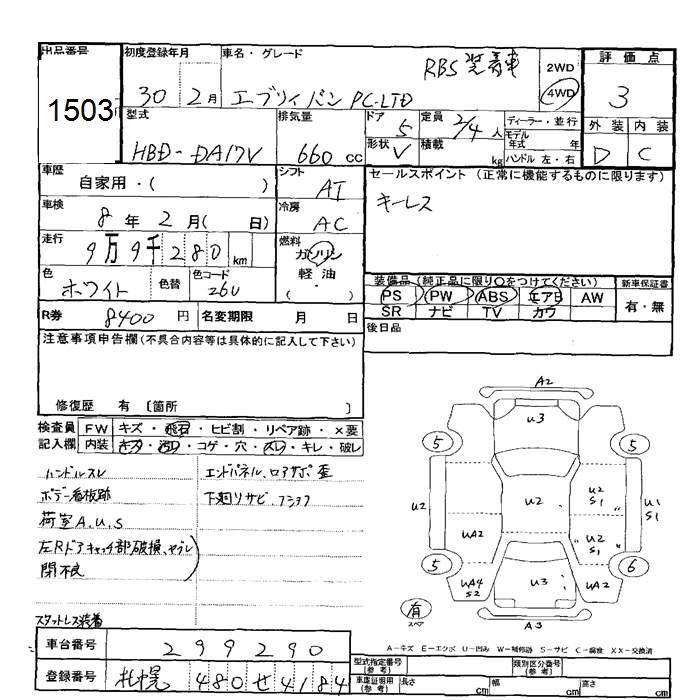 出品番号 初度登録年月 車名・グレード
RBS装着車
2WD 4WD
評価点
1503 30 2月 エブリィバン PC-LTD 3
型式 排気量 ドア 5 定員 2/4人 ディーラー・並行 外装 内装
HBD-DA17V 660cc 形状 V 積載 kg モデル年式 年 D C
ハンドル 左・右
車歴 シフト セールスポイント (正常に機能するものに限ります)
自家用・( ) AT キーレス
車検 冷房
8年 2月( 日) AC
走行 9万9千280km 燃料 ガソリン
軽油
・
( )
色 ホワイト 色替 色コード 26U
装備品(純正品に限り○をつけてください) 新車保証書
PS PW ABS エアB AW 有・無
SR ナビ TV カワ
R券 8400円 名変期限 月 日 後日品
注意事項申告欄(不具合内容等は具体的に記入して下さい)
修復歴 有 〔箇所 〕
検査員 FW キズ・飛石・ヒビ割・リペア跡・×要
記入欄 内装 キズ・汚レ・コゲ・穴・スレ・キレ・破レ
ハンドルスレ エンドパネル、ロアサポ歪
ボデー看板跡 下廻りサビ、
荷室A.U.S
左Rドアキャッチ部破損、
閉不良
スタットレス装着
A2
U3
5 5
U2 U2 U2 S1 U1 S1
UA2 〃U2 S1〃
5 6
UA4 S2 U3 UA2
有 スペア
A3
A-キズ E-エクボ U-凹み W-補修跡 S-サビ C-腐食 XX-交換済
車台番号 299290 型式指定番号(参考) 類別区分番号(参考)
登録番号 札幌 480せ4184 車庫証明用(参考) 長さ cm 幅 cm 高さ cm